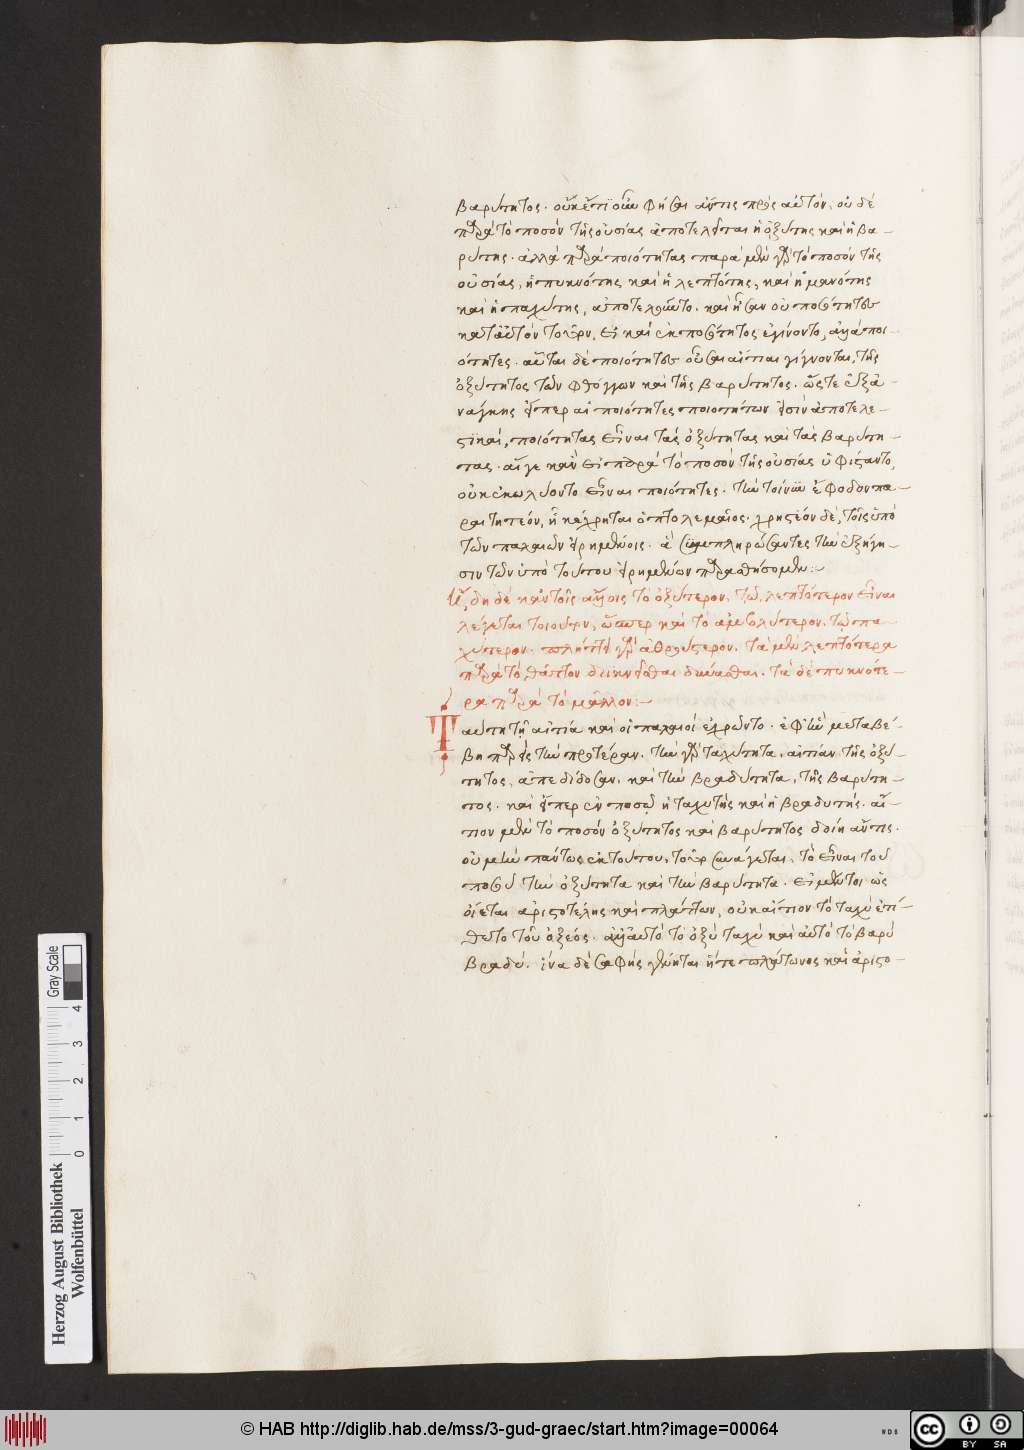 βαρύτητος. οὐκ ἔτι οὖν φήσαι ἄν τις πρὸς αὐτόν, οὐδὲ
παρὰ τὸ ποσὸν τῆς οὐσίας ἀποτελεῖται ἡ ὀξύτης καὶ ἡ βα-
ρύτης. ἀλλὰ παρὰ ποιότητας παρὰ μὲν γὰρ τὸ ποσὸν τῆς
οὐσίας, ἡ πυκνότης καὶ ἡ λεπτότης, καὶ ἡ μανότης
καὶ ἡ παχύτης, ἀπετελοῦντο. καὶ ἦσαν οὐ ποσότητες
κατ' αὐτὸν τοῦτον, εἰ καὶ ἐκ ποσότητος ἐγίνοντο, ἀλλὰ ποι-
ότητες. αὗται δὲ ποιότητες οὖσαι αἴτιαι γίγνονται, τῆς
ὀξύτητος τῶν φθόγγων καὶ τῆς βαρύτητος. ὥστε ἐξ ἀ-
νάγκης εἴπερ αἱ ποιότητες ποιοτήτων εἰσὶν ἀποτελε-
στικαί, ποιότητας εἶναι τὰς ὀξύτητας καὶ τὰς βαρύτη-
τας. αἵ γε κἂν εἰ παρὰ τὸ ποσὸν τῆς οὐσίας ὑφίσταντο,
οὐκ ἐκωλύοντο εἶναι ποιότητες. τὴν τοίνυν ἔφοδον πα-
ραιτητέον, ᾗ κέχρηται ὁ πτολεμαῖος. χρηστέον δὲ, τοῖς ὑπὸ
τῶν παλαιῶν εἰρημένοις. ἃ συμπληρώσαντες τὴν ἐξήγη-
σιν τῶν ὑπὸ τούτου εἰρημένων παραθήσομεν:~
Ἤδη δὲ κἀν τοῖς ἄλλοις τὸ ὀξύτερον, τῷ λεπτότερον εἶναι
λέγεται τοιοῦτον, ὥσπερ καὶ τὸ ἀμβλύτερον, τῷ πα-
χύτερον. πλήττει γὰρ ἀθρούστερον, τὰ μὲν λεπτότερα
παρὰ τὸ, θᾶττον διικνεῖσθαι δύνασθαι. τὰ δὲ πυκνότε-
ρα παρὰ τὸ μᾶλλον:~
Ταύτῃ τῇ αἰτίᾳ καὶ οἱ παλαιοὶ ἐχρῶντο. ἐφ' ἣν μεταβέ-
βη παρεὶς τὴν προτέραν. τὴν γὰρ ταχυτῆτα, αἰτίαν τῆς ὀξύ-
τητος, ἀπεδίδοσαν. καὶ τὴν βραδυτῆτα, τῆς βαρύτη-
τος. καὶ εἴπερ ἐν ποσῷ ἡ ταχυτὴς καὶ ἡ βραδυτής. αἴ-
τιον μὲν τὸ ποσὸν ὀξύτητος καὶ βαρύτητος δοίη ἄν τις.
οὐ μὴν πάντως ἐκ τούτου, τοῦτο συνάγεται, τὸ εἶναι τοῦ
ποσοῦ τὴν ὀξύτητα καὶ τὴν βαρύτητα. εἰ μέντοι ὡς
οἴεται ἀριστοτέλης καὶ πλάτων, οὐκ αἴτιον τὸ ταχὺ ἐπί-
θετο τοῦ ὀξέος. ἀλλ' αὐτὸ τὸ ὀξὺ ταχὺ καὶ αὐτὸ τὸ βαρὺ
βραδύ. ἵνα δὲ σαφὴς γένηται ἥ τε πλάτωνος καὶ ἀριστο-
Herzog August Bibliothek
Wolfenbüttel
0 1 2 3 4
Gray Scale
© HAB http://diglib.hab.de/mss/3-gud-graec/start.htm?image=00064
WDB
cc BY SA